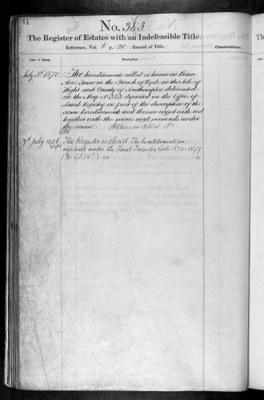 No. 383
The Register of Estates with an Indefeasible Title.
Reference, Vol. 6 p. 21 Record of Title.
Observations.
Date of Entry.
Description.
July 5th 1870. The hereditaments called or known as
Acre House in the Parish of Ryde in the Isle of
Wight and County of Southampton delineated
on the Map No. 383 deposited in the Office of
Land Registry as part of the description of the
same hereditaments and thereon edged with red
together with the mines and minerals under
the same.
7th July 1898 The Register is closed. The hereditaments are
registered under the Land Transfer Acts 1875 & 1897